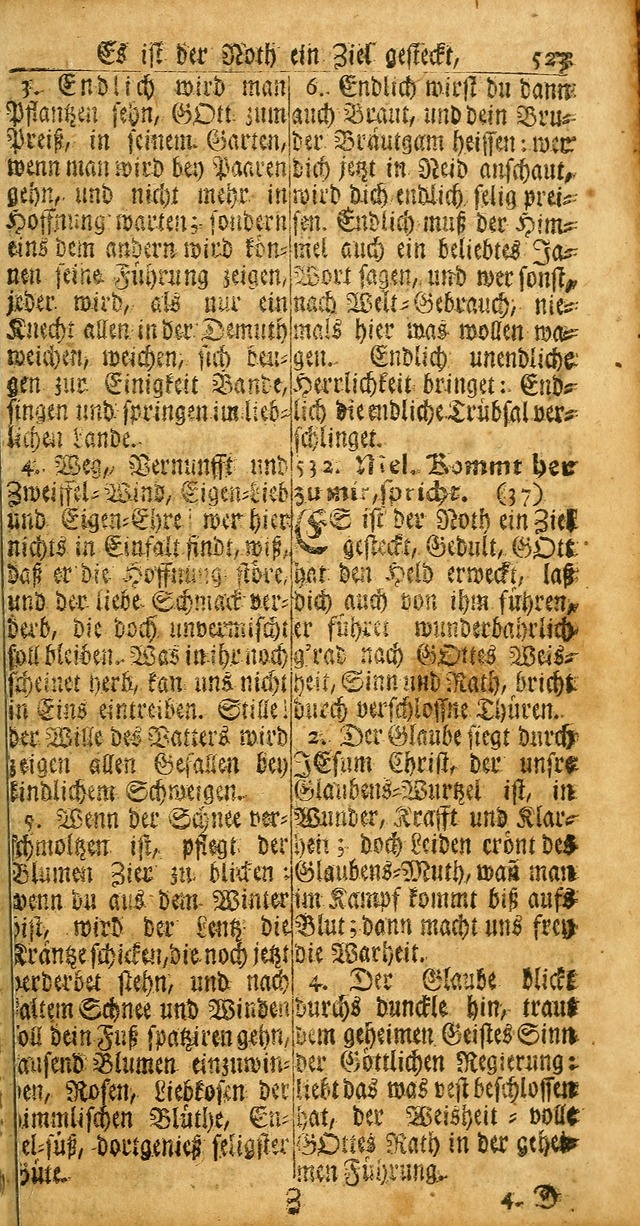 Es ist der Noth ein Ziel gesteckt, 523
3. Endlich wird man
Pflantzen sehn, GOtt zum
Preiß, in seinem Garten,
wenn man wird bey Paaren
gehn, und nicht mehr in
Hoffnung warten; sondern
eins dem andern wird kön-
nen seine Führung zeigen,
jeder wird, als nur ein
Knecht allen in der Demuth
weichen, weichen, sich beu-
gen zur Einigkeit Bande,
singen und springen im lieb-
lichen Lande.
4. Weg, Vernunfft und
Zweiffel-Wind, Eigen-Lieb
und Eigen-Ehre! wer hier
nichts in Einfalt findt, wiß,
daß er die Hoffnung störe,
und der liebe Schmack ver-
derb, die doch unvermischt
soll bleiben. Was in ihr noch
scheinet herb, kan uns nicht
in Eins eintreiben. Stille!
der Wille des Vatters wird
zeigen allen Gefallen bey
kindlichem Schweigen.
5. Wenn der Schnee ver-
schmoltzen ist, pflegt der
Blumen Zier zu blicken:
wenn du aus dem Winter
bist, wird der Lentz die
Kräntze schicken, die noch jetzt
verderbet stehn, und nach
altem Schnee und Winden
soll dein Fuß spatziren gehn,
tausend Blumen einzuwin-
den, Rosen, Liebkosen der
himmlischen Blüthe, En-
gel-süß, dort genieß seligster
Güte.
6. Endlich wirst du dann
auch Braut, und dein Bru-
der Bräutgam heissen: wer
dich jetzt in Neid anschaut,
wird dich endlich selig prei-
sen. Endlich muß der Him-
mel auch ein beliebtes Ja-
Wort sagen, und wer sonst,
nach Welt-Gebrauch, nie-
mals hier was wollen wa-
gen. Endlich unendliche
Herrlichkeit bringet: End-
lich die endliche Trübsal ver-
schlinget.
532. Mel. Kommt her
zu mir, spricht. (37)
ES ist der Noth ein Ziel
gesteckt, Gedult, GOtt
hat den Held erweckt, laß
dich auch von ihm führen,
er führet wunderbahrlich
g'rad nach GOttes Weis-
heit, Sinn und Rath, bricht
durch verschloßne Thüren.
2. Der Glaube siegt durch
JEsum Christ, der unsre
Glaubens-Wurtzel ist, in
Wunder, Krafft und Klar-
heit; doch Leiden crönt des
Glaubens-Muth, wañ man
im Kampf kommt biß aufs
Blut; dann macht uns frey
die Warheit.
4. Der Glaube blickt
durchs dunckle hin, traut
dem geheimen Geistes Sinn
der Göttlichen Regierung:
liebt das was vest beschlossen
hat, der Weisheit-volle
GOttes Rath in der gehei-
men Führung.
Z 4. D